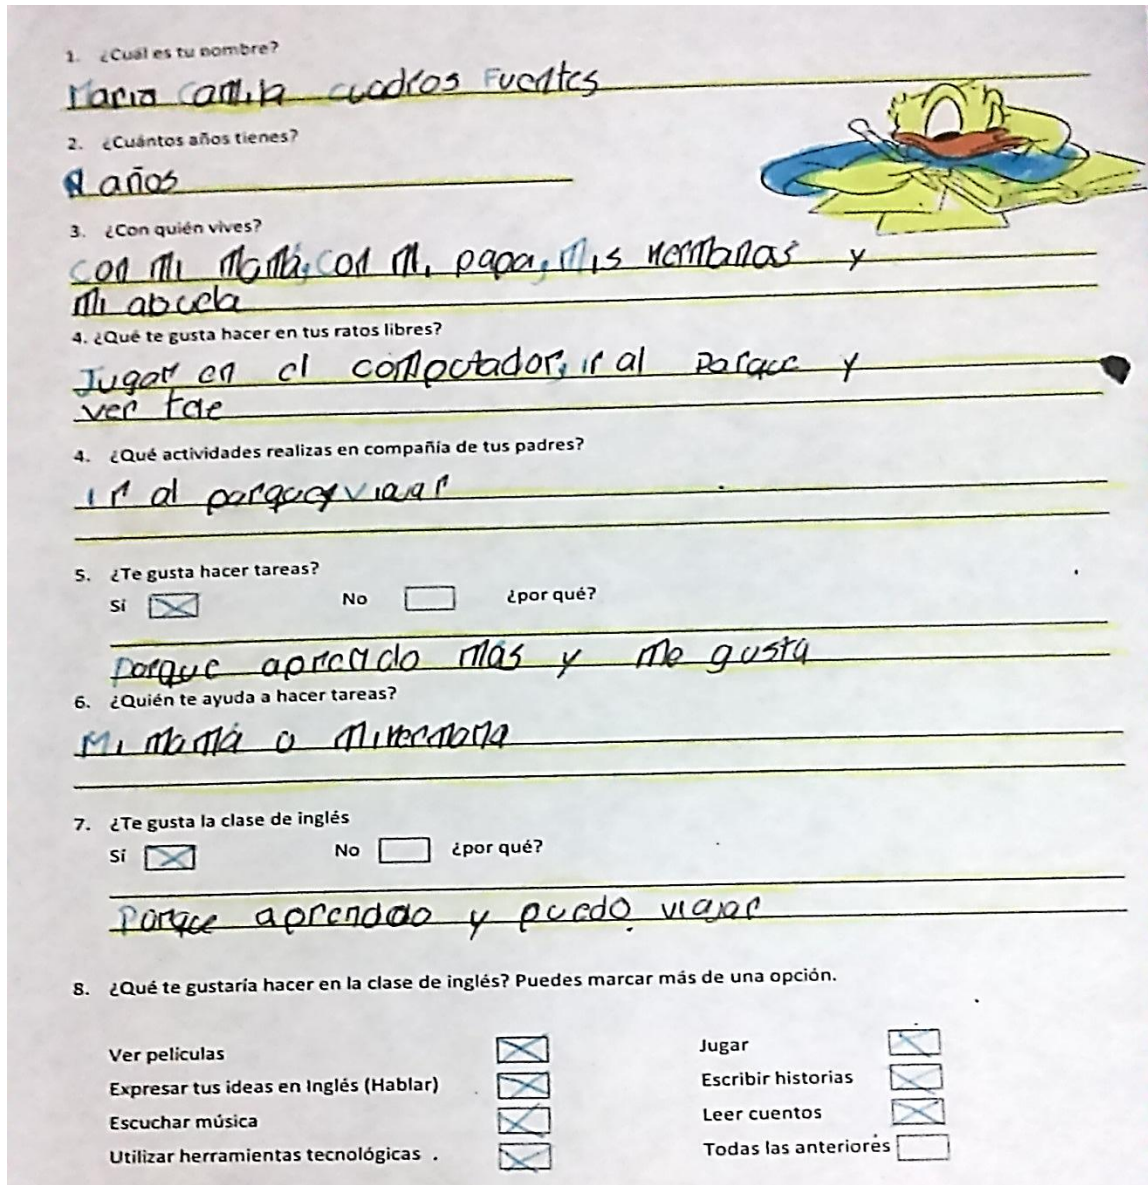 1. ¿Cuál es tu nombre?
Maria Camila cuadros Fuentes
2. ¿Cuántos años tienes?
años
3. ¿Con quién vives?
con mi mamá, con mi papa, mis hermanas y
mi abuela
4. ¿Qué te gusta hacer en tus ratos libres?
Jugar en el computador, ir al Parque y
ver
4. ¿Qué actividades realizas en compañía de tus padres?
ir al parque y viajar
5. ¿Te gusta hacer tareas?
Sí No ¿por qué?
porque aprendo más y me gusta
6. ¿Quién te ayuda a hacer tareas?
Mi mamá o mi hermana
7. ¿Te gusta la clase de inglés
Sí No ¿por qué?
Porque aprendo y puedo viajar
8. ¿Qué te gustaría hacer en la clase de inglés? Puedes marcar más de una opción.
Ver películas Jugar
Expresar tus ideas en Inglés (Hablar) Escribir historias
Escuchar música Leer cuentos
Utilizar herramientas tecnológicas . Todas las anteriores